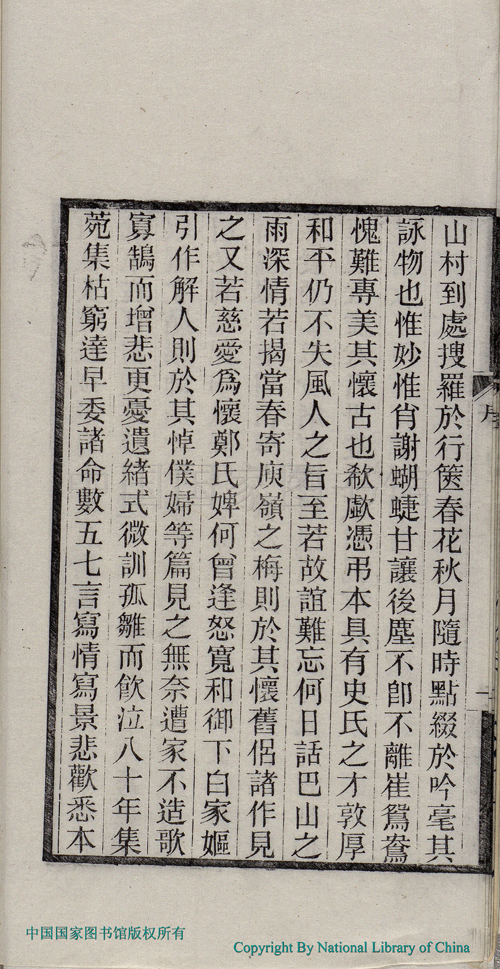 山村到處搜羅於行篋春花秋月隨時點綴於吟毫其
詠物也惟妙惟肖謝蝴蜨甘讓後塵不卽不離崔鴛鴦
愧難專美其懷古也欷歔憑弔本具有史氏之才敦厚
和平仍不失風人之旨至若故誼難忘何日話巴山之
雨深情若揭當春寄庾嶺之梅則於其懷舊侶諸作見
之又若慈愛爲懷鄭氏婢何曾逢怒寬和御下白家嫗
引作解人則於其悼僕婦等篇見之無奈遭家不造歌
寡鵠而增悲更憂遺緒式微訓孤雛而飮泣八十年集
菀集枯窮達早委諸命數五七言寫情寫景悲歡悉本
序
一
中国国家图书馆版权所有
Copyright By National Library of China